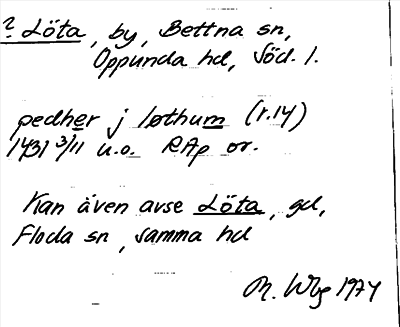 ? Löta, by, Bettna sn,
Oppunda hd, Söd. l.
pedher j løthum (r.14)
1431 3/11 u.o. RAp or.
Kan även avse Löta, gd,
Floda sn, samma hd
M. Wbg 1974